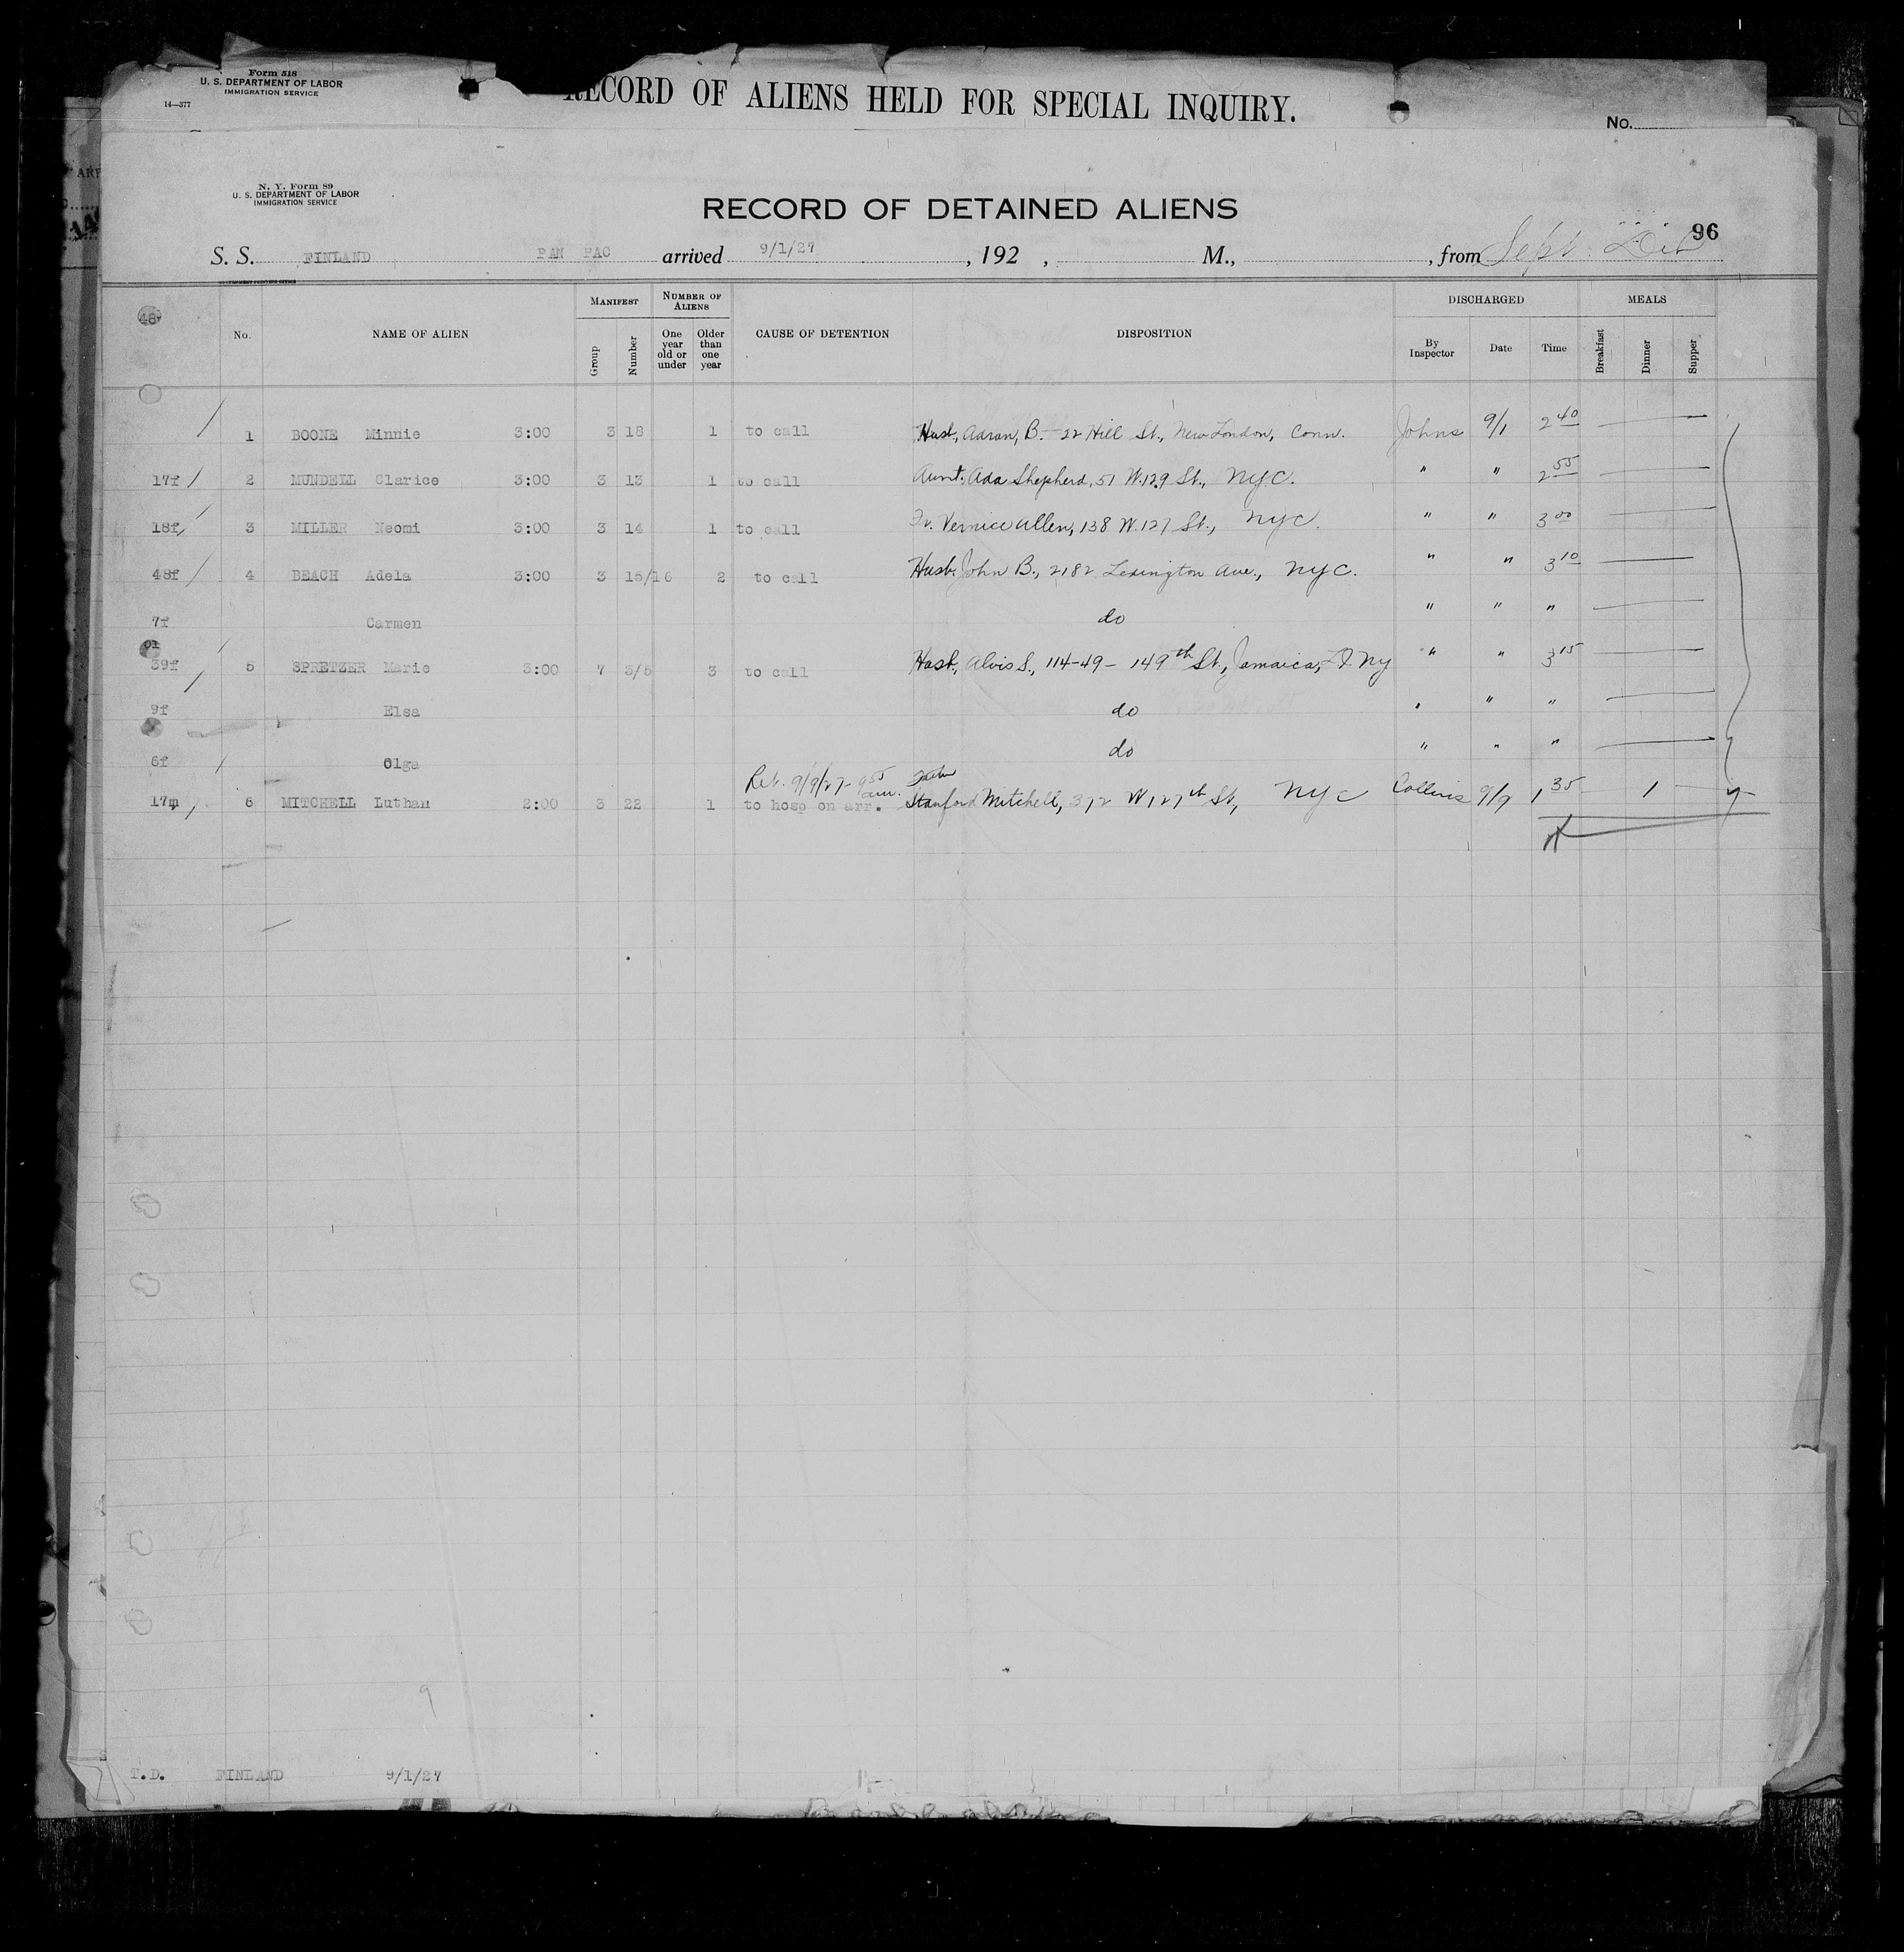 Form 518
U. S. DEPARTMENT OF LABOR
IMMIGRATION SERVICE
14—377
RECORD OF ALIENS HELD FOR SPECIAL INQUIRY.
No.
N. Y. Form 89
U. S. DEPARTMENT OF LABOR
IMMIGRATION SERVICE
RECORD OF DETAINED ALIENS
96
S. S. FINLAND PAN PAC arrived 9/1/27 , 192 , M., , from Sept
MANIFEST NUMBER OF ALIENS DISCHARGED MEALS
48f No. NAME OF ALIEN Group Number One year old or under Older than one year CAUSE OF DETENTION DISPOSITION By Inspector Date Time Breakfast Dinner Supper
1 BOONE Minnie 3:00 3 18 1 to call Husb, Aaron, B. - 22 Hill St., New London, Conn. Johns 9/1 2 40
17f 2 MUNDELL Clarice 3:00 3 13 1 to call Aunt, Ada Shepherd, 51 W. 129 St., NYC. " " 2 55
18f 3 MILLER Neomi 3:00 3 14 1 to call Vernice Allen, 138 W. 127 St., NYC. " " 3 00
48f 4 BEACH Adela 3:00 3 15/16 2 to call Husb, John B., 2182 Lexington Ave., NYC. " " 3 10
7f Carmen do " " "
39f 5 SPRETZER Marie 3:00 7 3/5 3 to call Husb, Alvis S., 114-49- 149th St., Jamaica, NY " " 3 15
9f Elsa do " " "
6f Olga do " " "
Ret. 9/9/27- 9 55 am. Father
17m 6 MITCHELL Luthan 2:00 3 22 1 to hosp on arr. Stanford Mitchell, 372 W 127th St, NYC Collins 9/9 1 35 1
9
T.D. FINLAND 9/1/27